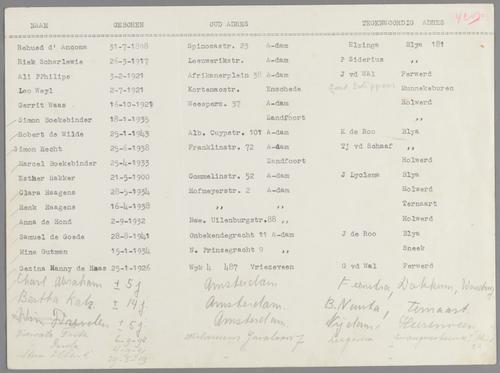 NAAM GEBOREN OUD ADRES TEGENWOORDIG ADRES
Rehued d' Ancona 31-7-1898 Spinozastr. 23 A-dam Elzinga Blya 181
Riek Scharlewie 26-3-1917 Leeuwerikstr. A-dam P Siderius ,,
Ali Philips 3-2-1921 Afrikanerplein 38 A-dam J vd Wal Ferwerd
Leo Weyl 2-7-1921 Kortenaestr. Enschede Hunnekeburen
Gerrit Waas 16-10-1921 Weespers. 37 A-dam Holwerd
Simon Boekebinder 18-1-1935 Zandfoort ,,
Robert de Wilde 25-1-1943 Alb. Cuypstr. 101 A-dam K de Roo Blya
Simon Hecht 25-6-1938 Franklinstr. 72 A-dam Tj vd Schaaf ,,
Marcel Boekebinder 25-4-1933 Zandfoort Holwerd
Esther Hakker 21-5-1900 Commelinstr. 52 A-dam J Lyclema Blya
Clara Haagens 28-5-1934 Hofmeyerstr. 2 A-dam Holwerd
Henk Haagens 16-4-1938 ,, ,, Ternaart
Anna de Hond 2-9-1932 Nwe. Uilenburgstr.88 ,, Holwerd
Samuel de Goede 28-8-1941 Onbekendegracht 11 A-dam J de Roo Blya
Mina Gutman 15-1-1934 N. Prinsegracht 9 ,, Sneek
Gezina Nanny de Haas 25-1-1926 Wyk 4 487 Vriezeveen G vd Wal Ferwerd
Abraham ± 5 j Amsterdam Dokkum,
Bertha Katz ± 14 j Amsterdam. B. Ternaart
± 5 j Amsterdam. Heerenveen